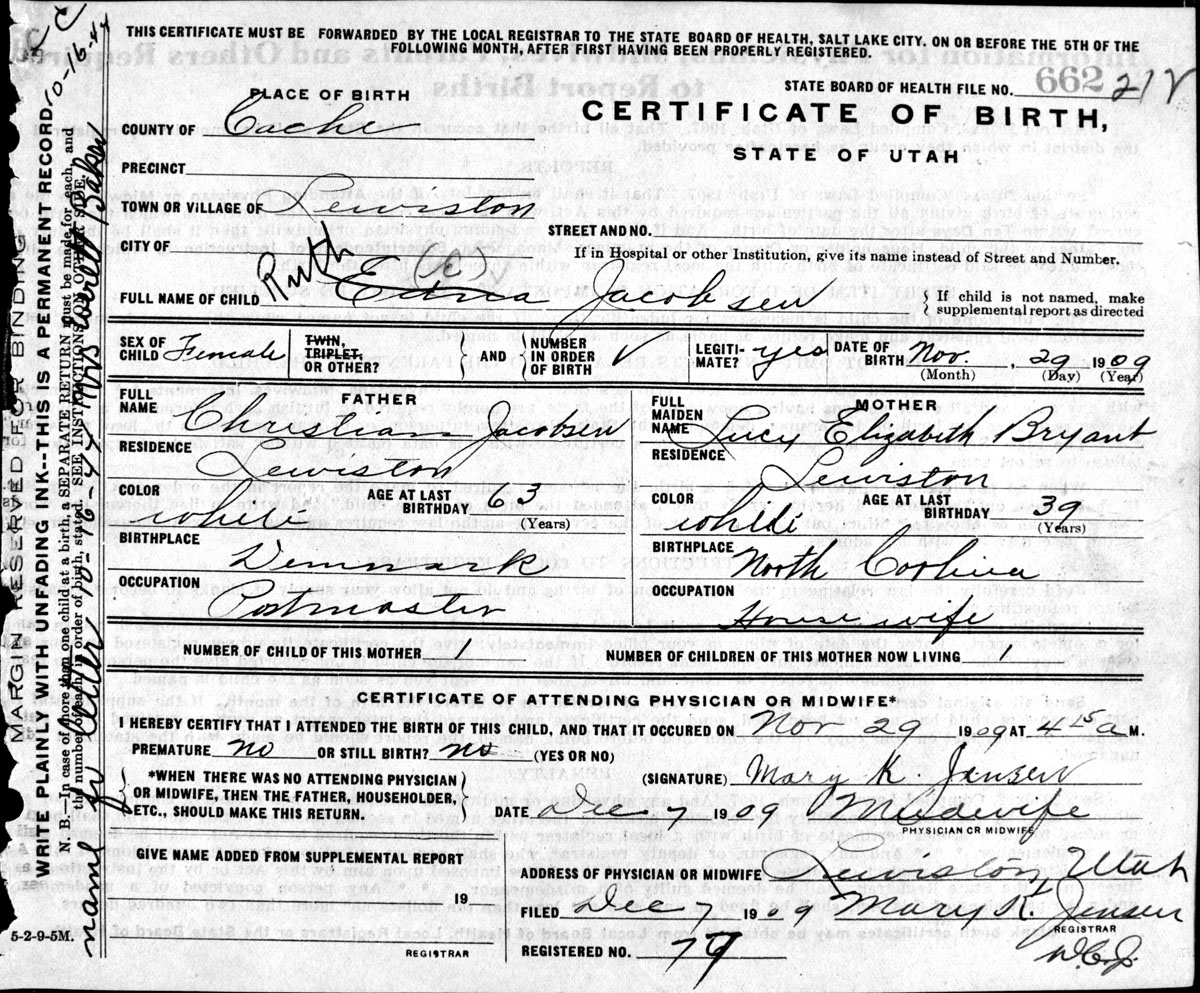 THIS CERTIFICATE MUST BE FORWARDED BY THE LOCAL REGISTRAR TO THE STATE BOARD OF HEALTH, SALT LAKE CITY, ON OR BEFORE THE 5TH OF THE
FOLLOWING MONTH, AFTER FIRST HAVING BEEN PROPERLY REGISTERED.
STATE BOARD OF HEALTH FILE NO. 662
PLACE OF BIRTH
CERTIFICATE OF BIRTH,
STATE OF UTAH
COUNTY OF Cache
PRECINCT
TOWN OR VILLAGE OF Lewiston
STREET AND NO.
CITY OF
If in Hospital or other Institution, give its name instead of Street and Number.
Ruth E (C)
FULL NAME OF CHILD Edna Jacobsen
{ If child is not named, make
supplemental report as directed
SEX OF CHILD Female
TWIN, TRIPLET, OR OTHER?
AND
NUMBER IN ORDER OF BIRTH
LEGITI-MATE? yes
DATE OF BIRTH Nov. 29 1909
(Month) (Day) (Year)
FATHER
FULL NAME Christian Jacobsen
RESIDENCE Lewiston
COLOR white
AGE AT LAST BIRTHDAY 63
(Years)
BIRTHPLACE Denmark
OCCUPATION Postmaster
MOTHER
FULL MAIDEN NAME Lucy Elizabeth Bryant
RESIDENCE Lewiston
COLOR white
AGE AT LAST BIRTHDAY 39
(Years)
BIRTHPLACE North Carolina
OCCUPATION House wife
NUMBER OF CHILD OF THIS MOTHER 1
NUMBER OF CHILDREN OF THIS MOTHER NOW LIVING 1
CERTIFICATE OF ATTENDING PHYSICIAN OR MIDWIFE*
I HEREBY CERTIFY THAT I ATTENDED THE BIRTH OF THIS CHILD, AND THAT IT OCCURED ON Nov 29 1909 AT 4 15 a M.
PREMATURE no OR STILL BIRTH? no (YES OR NO)
*WHEN THERE WAS NO ATTENDING PHYSICIAN
OR MIDWIFE, THEN THE FATHER, HOUSEHOLDER,
ETC., SHOULD MAKE THIS RETURN.
(SIGNATURE) Mary K. Jensen
DATE Dec 7 1909 Midwife
PHYSICIAN OR MIDWIFE
GIVE NAME ADDED FROM SUPPLEMENTAL REPORT
19
REGISTRAR
ADDRESS OF PHYSICIAN OR MIDWIFE Lewiston Utah
FILED Dec 7 1909 Mary K. Jensen
REGISTRAR
REGISTERED NO. 79
5-2-9-5M.
MARGIN RESERVED FOR BINDING
WRITE PLAINLY WITH UNFADING INK--THIS IS A PERMANENT RECORD.
N. B.--In case of more than one child at a birth, a SEPARATE RETURN must be made for each, and
the number of each, in order of birth, stated. SEE INSTRUCTIONS ON OTHER SIDE.
10-16-44